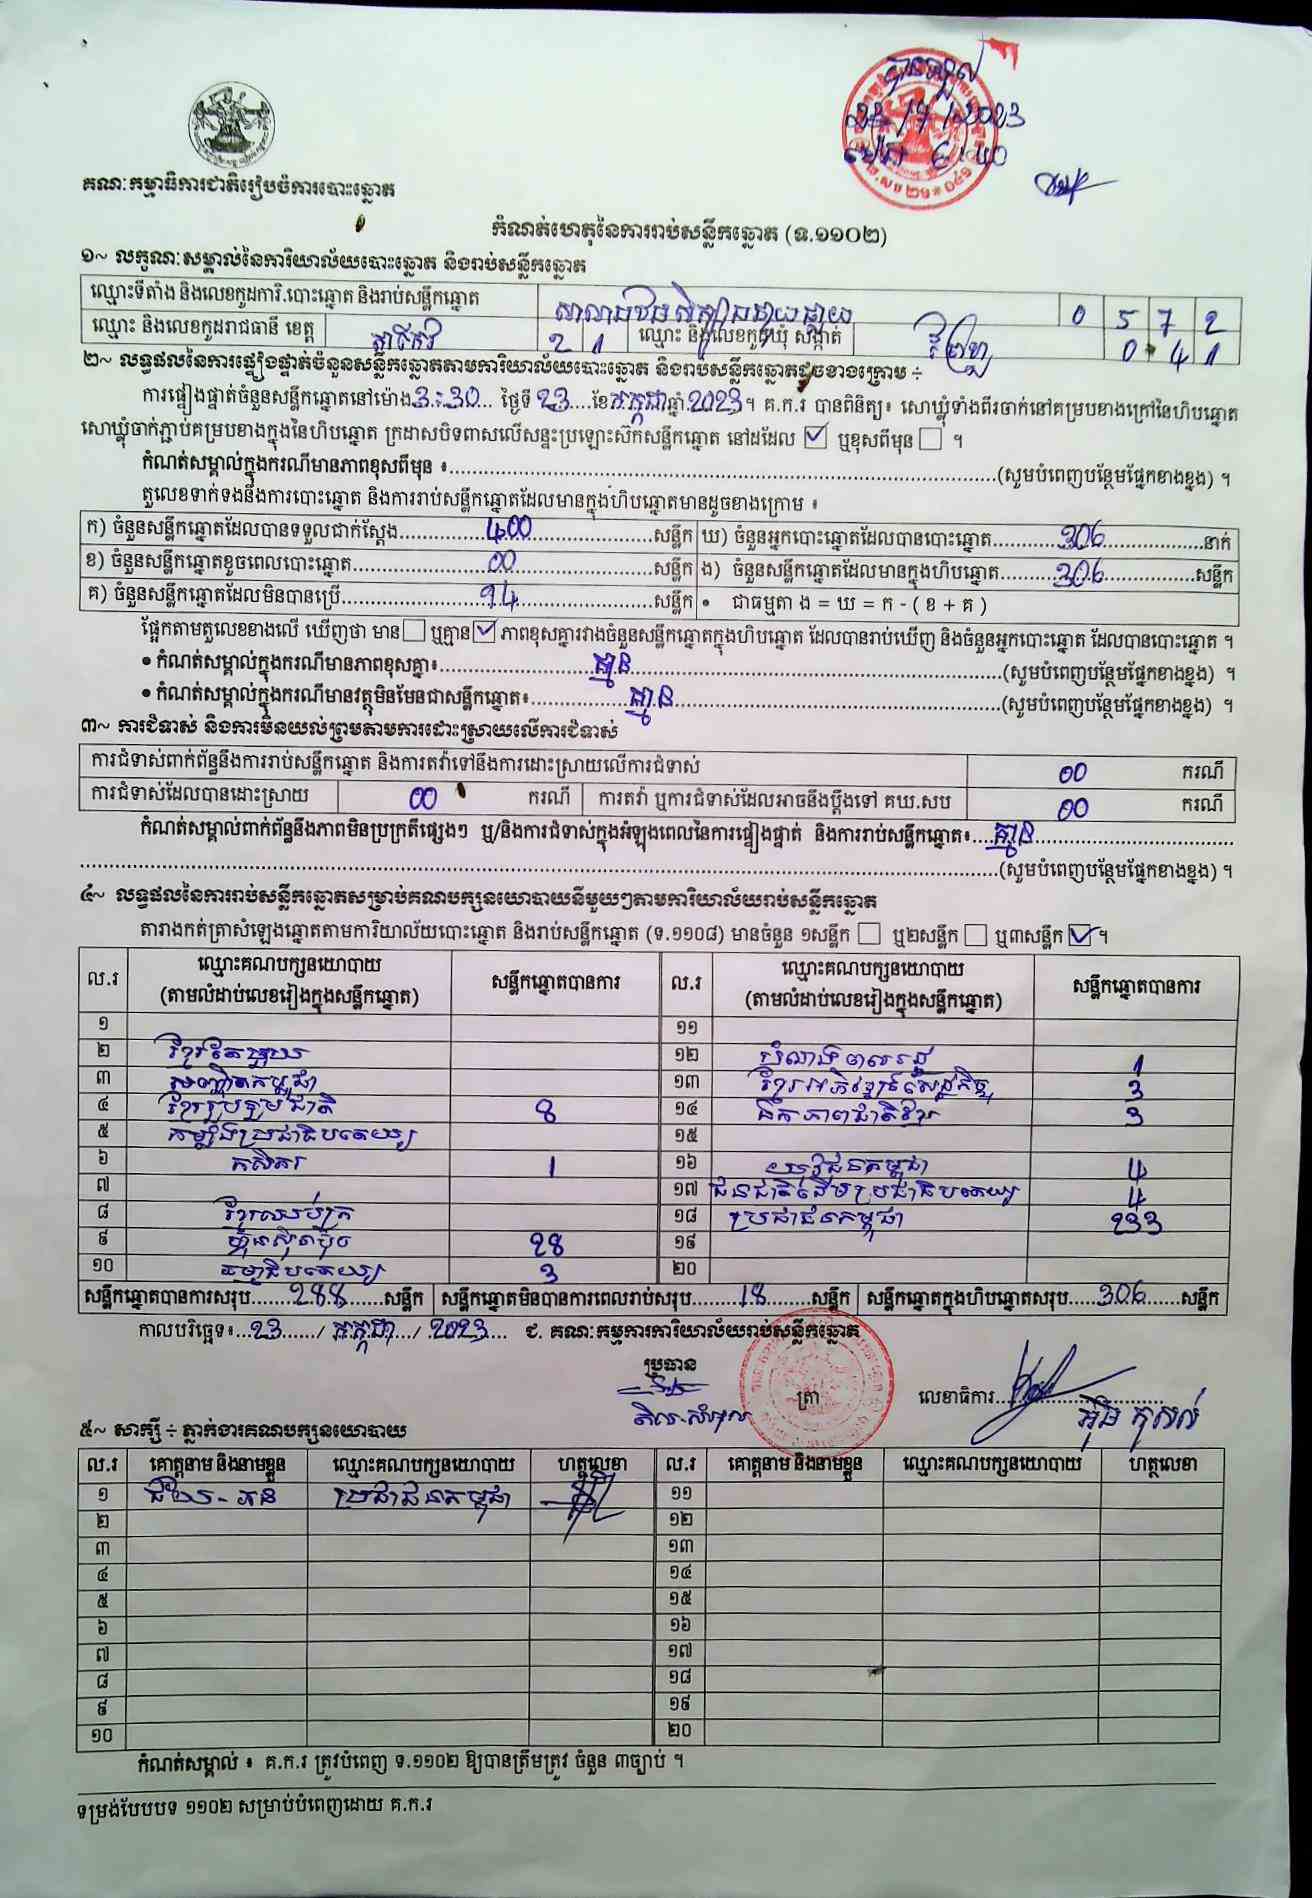 បានទទួល
23/7/2023
គណៈកម្មាធិការជាតិរៀបចំការបោះឆ្នោត
កំណត់ហេតុនៃការរាប់សន្លឹកឆ្នោត (ទ.១១០២)
១~ លក្ខណៈសម្គាល់នៃការិយាល័យបោះឆ្នោត និងរាប់សន្លឹកឆ្នោត
ឈ្មោះទីតាំង និងលេខកូដការិ.បោះឆ្នោត និងរាប់សន្លឹកឆ្នោត 0 5 7 2
ឈ្មោះ និងលេខកូដរាជធានី ខេត្ត តាកែវ 2 1 ឈ្មោះ និងលេខកូដឃុំ សង្កាត់ 0 4 1
២~ លទ្ធផលនៃការផ្ទៀងផ្ទាត់ចំនួនសន្លឹកឆ្នោតតាមការិយាល័យបោះឆ្នោត និងរាប់សន្លឹកឆ្នោតដូចខាងក្រោម ÷
ការផ្ទៀងផ្ទាត់ចំនួនសន្លឹកឆ្នោតនៅម៉ោង 3:30... ថ្ងៃទី 23....ខែ កក្កដា ឆ្នាំ 2023។ គ.ក.រ បានពិនិត្យ៖ សោឃ្លុំទាំងពីរចាក់នៅគម្របខាងក្រៅនៃហិបឆ្នោត
សោឃ្លុំចាក់ភ្ជាប់គម្របខាងក្នុងនៃហិបឆ្នោត ក្រដាសបិទពាសលើសន្ទះប្រឡោះស៊កសន្លឹកឆ្នោត នៅដដែល ☑ ឬខុសពីមុន ☐ ។
កំណត់សម្គាល់ក្នុងករណីមានភាពខុសពីមុន ៖......(សូមបំពេញបន្ថែមផ្នែកខាងខ្នង) ។
តួលេខទាក់ទងនឹងការបោះឆ្នោត និងការរាប់សន្លឹកឆ្នោតដែលមានក្នុងហិបឆ្នោតមានដូចខាងក្រោម ៖
ក) ចំនួនសន្លឹកឆ្នោតដែលបានទទួលជាក់ស្តែង......400......សន្លឹក ឃ) ចំនួនអ្នកបោះឆ្នោតដែលបានបោះឆ្នោត......306......នាក់
ខ) ចំនួនសន្លឹកឆ្នោតខូចពេលបោះឆ្នោត......00......សន្លឹក ង) ចំនួនសន្លឹកឆ្នោតដែលមានក្នុងហិបឆ្នោត......306......សន្លឹក
គ) ចំនួនសន្លឹកឆ្នោតដែលមិនបានប្រើ......94......សន្លឹក • ជាធម្មតា ង = ឃ = ក - ( ខ + គ )
ផ្អែកតាមតួលេខខាងលើ ឃើញថា មាន ☐ ឬគ្មាន ☑ ភាពខុសគ្នារវាងចំនួនសន្លឹកឆ្នោតក្នុងហិបឆ្នោត ដែលបានរាប់ឃើញ និងចំនួនអ្នកបោះឆ្នោត ដែលបានបោះឆ្នោត ។
• កំណត់សម្គាល់ក្នុងករណីមានភាពខុសគ្នា៖......គ្មាន......(សូមបំពេញបន្ថែមផ្នែកខាងខ្នង) ។
• កំណត់សម្គាល់ក្នុងករណីមានវត្ថុមិនមែនជាសន្លឹកឆ្នោត៖......គ្មាន......(សូមបំពេញបន្ថែមផ្នែកខាងខ្នង) ។
៣~ ការជំទាស់ និងការមិនយល់ព្រមតាមការដោះស្រាយលើការជំទាស់
ការជំទាស់ពាក់ព័ន្ធនឹងការរាប់សន្លឹកឆ្នោត និងការតវ៉ាទៅនឹងការដោះស្រាយលើការជំទាស់ 00 ករណី
ការជំទាស់ដែលបានដោះស្រាយ 00 ករណី ការតវ៉ា ឬការជំទាស់ដែលអាចនឹងប្តឹងទៅ គឃ.សប 00 ករណី
កំណត់សម្គាល់ពាក់ព័ន្ធនឹងភាពមិនប្រក្រតីផ្សេងៗ ឬ/និងការជំទាស់ក្នុងអំឡុងពេលនៃការផ្ទៀងផ្ទាត់ និងការរាប់សន្លឹកឆ្នោត៖....គ្មាន......
......(សូមបំពេញបន្ថែមផ្នែកខាងខ្នង) ។
៤~ លទ្ធផលនៃការរាប់សន្លឹកឆ្នោតសម្រាប់គណបក្សនយោបាយនីមួយៗតាមការិយាល័យរាប់សន្លឹកឆ្នោត
តារាងកត់ត្រាសំឡេងឆ្នោតតាមការិយាល័យបោះឆ្នោត និងរាប់សន្លឹកឆ្នោត (ទ.១១០៨) មានចំនួន ១សន្លឹក ☐ ឬ២សន្លឹក ☐ ឬ៣សន្លឹក ☑ ។
ល.រ ឈ្មោះគណបក្សនយោបាយ (តាមលំដាប់លេខរៀងក្នុងសន្លឹកឆ្នោត) សន្លឹកឆ្នោតបានការ ល.រ ឈ្មោះគណបក្សនយោបាយ (តាមលំដាប់លេខរៀងក្នុងសន្លឹកឆ្នោត) សន្លឹកឆ្នោតបានការ
១ ១១
២ ខ្មែរតែមួយ ១២ 1
៣ ១៣ ខ្មែរអភិវឌ្ឍន៍សេដ្ឋកិច្ច 3
៤ ខ្មែររួបរួមជាតិ 8 ១៤ ឯកភាពជាតិខ្មែរ 3
៥ កម្លាំងប្រជាធិបតេយ្យ ១៥
៦ កសិករ 1 ១៦ យុវជនកម្ពុជា 4
៧ ១៧ ជនជាតិដើមប្រជាធិបតេយ្យ 4
៨ ខ្មែរឈប់ក្រ ១៨ ប្រជាជនកម្ពុជា 233
៩ ហ៊្វុនស៊ិនប៉ិច 28 ១៩
១០ ធម្មាធិបតេយ្យ 3 ២០
សន្លឹកឆ្នោតបានការសរុប......288......សន្លឹក សន្លឹកឆ្នោតមិនបានការពេលរាប់សរុប......18......សន្លឹក សន្លឹកឆ្នោតក្នុងហិបឆ្នោតសរុប......306......សន្លឹក
កាលបរិច្ឆេទ៖...23....../ កក្កដា.../ .2023.... ជ. គណៈកម្មការការិយាល័យរាប់សន្លឹកឆ្នោត
ប្រធាន ត្រា លេខាធិការ......
៥~ សាក្សី ÷ ភ្នាក់ងារគណបក្សនយោបាយ
ល.រ គោត្តនាម និងនាមខ្លួន ឈ្មោះគណបក្សនយោបាយ ហត្ថលេខា ល.រ គោត្តនាម និងនាមខ្លួន ឈ្មោះគណបក្សនយោបាយ ហត្ថលេខា
១ ប្រជាជនកម្ពុជា ១១
២ ១២
៣ ១៣
៤ ១៤
៥ ១៥
៦ ១៦
៧ ១៧
៨ ១៨
៩ ១៩
១០ ២០
កំណត់សម្គាល់ ៖ គ.ក.រ ត្រូវបំពេញ ទ.១១០២ ឱ្យបានត្រឹមត្រូវ ចំនួន ៣ច្បាប់ ។
ទម្រង់បែបបទ ១១០២ សម្រាប់បំពេញដោយ គ.ក.រ